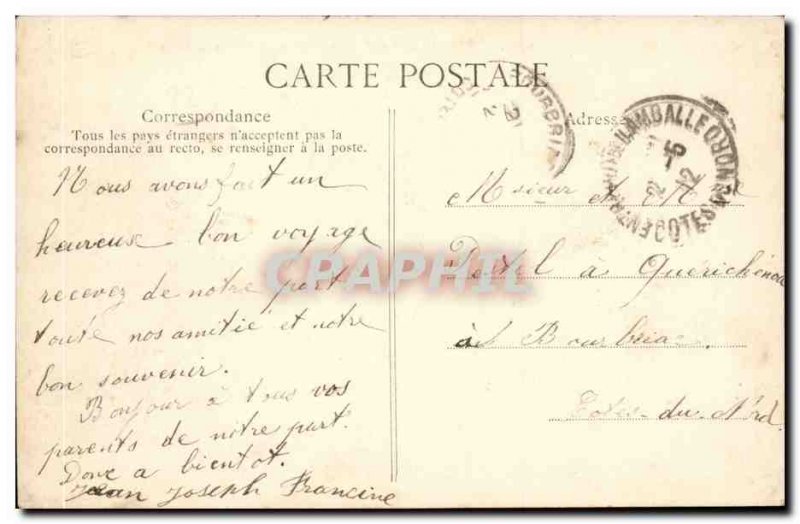 CARTE POSTALE
Correspondance
Tous les pays étrangers n'acceptent pas la
correspondance au recto, se renseigner à la poste.
Nous avons fait un
heureuse bon voyage
recevez de notre part
toute nos amitié et notre
bon souvenir.
Bonjour à tous vos
parents de notre part.
Donc a bientot.
Jean Joseph Francine
Adresse
Msieur et Mme
à
à Bourbriac.
Cotes-du-Nord
BOURBRIAC
LAMBALLE
COTES DU NORD
CPAPHIL